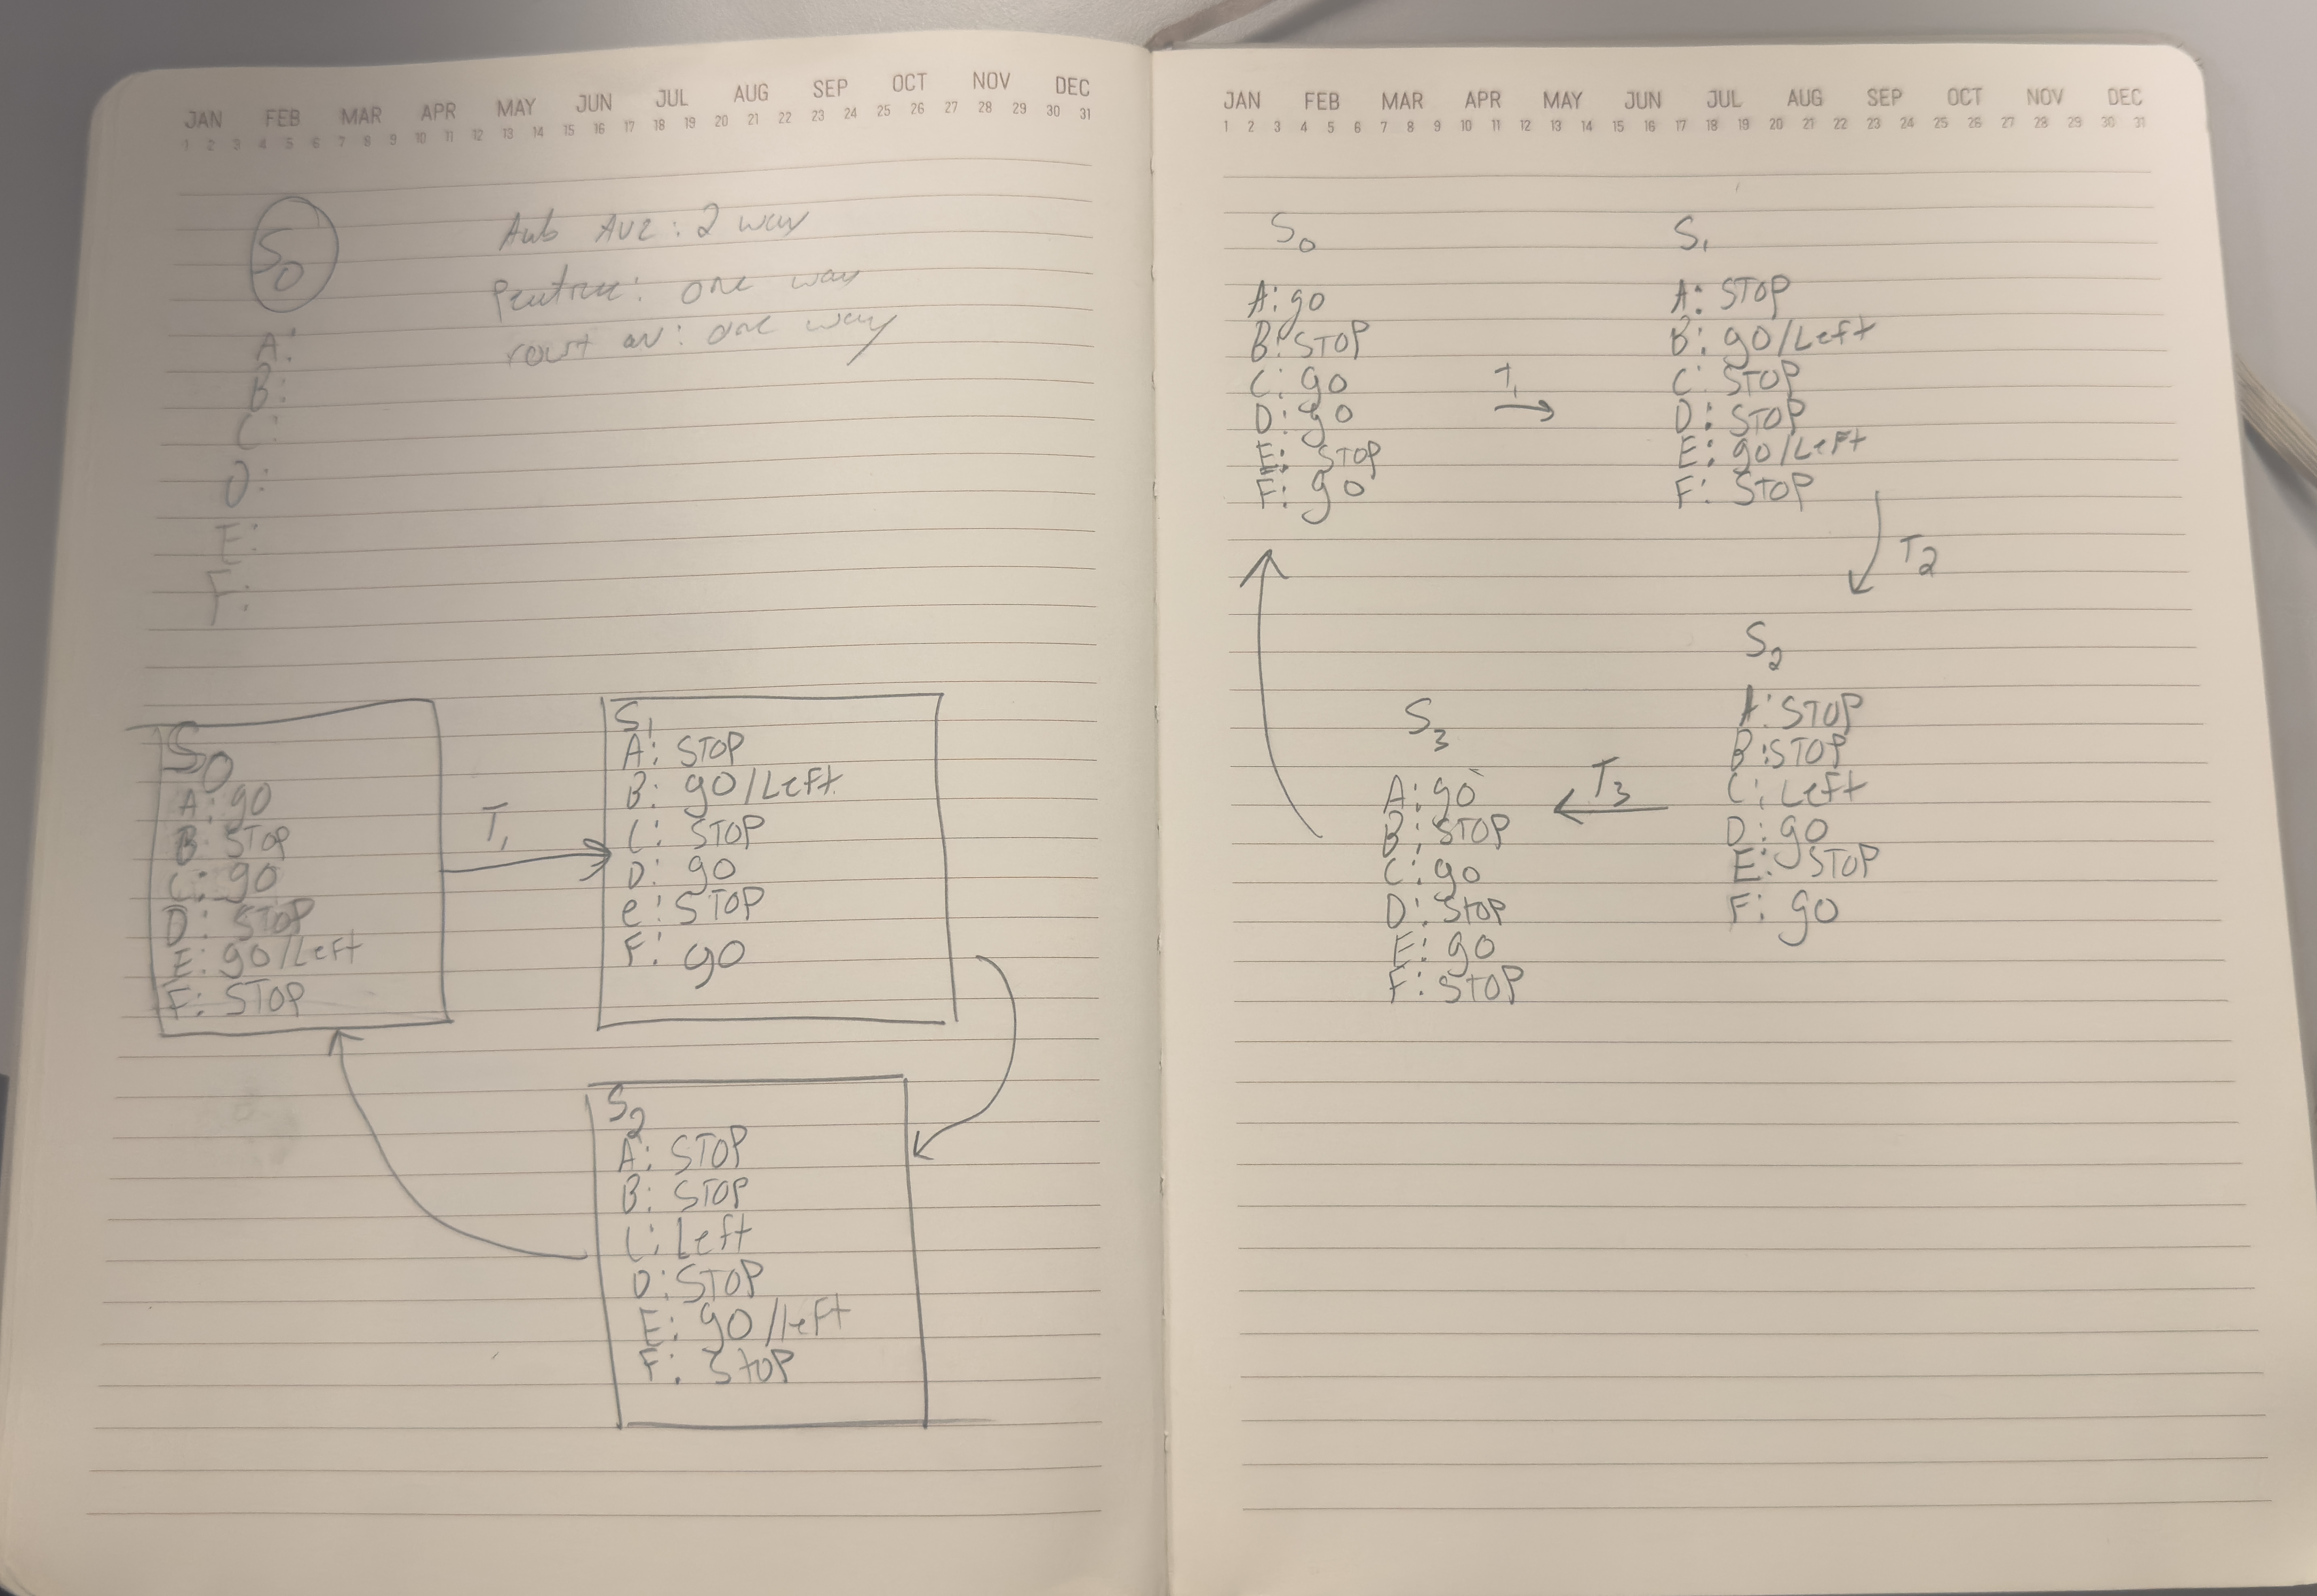 JAN FEB MAR APR MAY JUN JUL AUG SEP OCT NOV DEC
1 2 3 4 5 6 7 8 9 10 11 12 13 14 15 16 17 18 19 20 21 22 23 24 25 26 27 28 29 30 31
S0
A:
B:
C:
D:
E:
F:
AVE: 2 way
one way
one way
S0
A: go
B: STOP
C: go
D: STOP
E: go/Left
F: STOP
T1
S1
A: STOP
B: go/Left
C: STOP
D: go
e: STOP
F: go
S2
A: STOP
B: STOP
C: Left
D: STOP
E: go/left
F: STOP
JAN FEB MAR APR MAY JUN JUL AUG SEP OCT NOV DEC
1 2 3 4 5 6 7 8 9 10 11 12 13 14 15 16 17 18 19 20 21 22 23 24 25 26 27 28 29 30 31
S0
A: go
B: STOP
C: go
D: go
E: STOP
F: go
T1
S1
A: STOP
B: go/Left
C: STOP
D: STOP
E: go/Left
F: STOP
T2
S2
A: STOP
B: STOP
C: Left
D: go
E: STOP
F: go
T3
S3
A: go
B: STOP
C: go
D: STOP
E: go
F: STOP